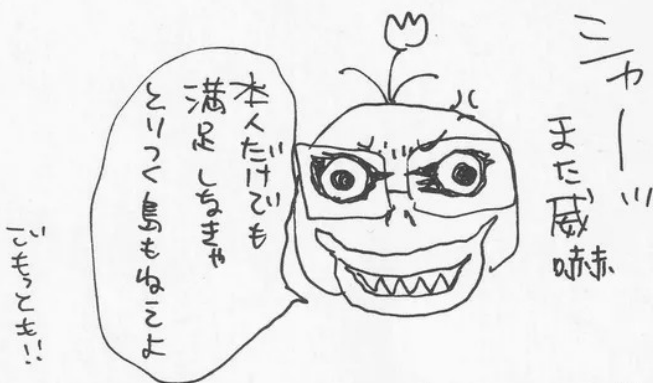 シャーッ
また威嚇
本人だけでも
満足しなきゃ
とりつく島もねえよ
ごもっとも!!